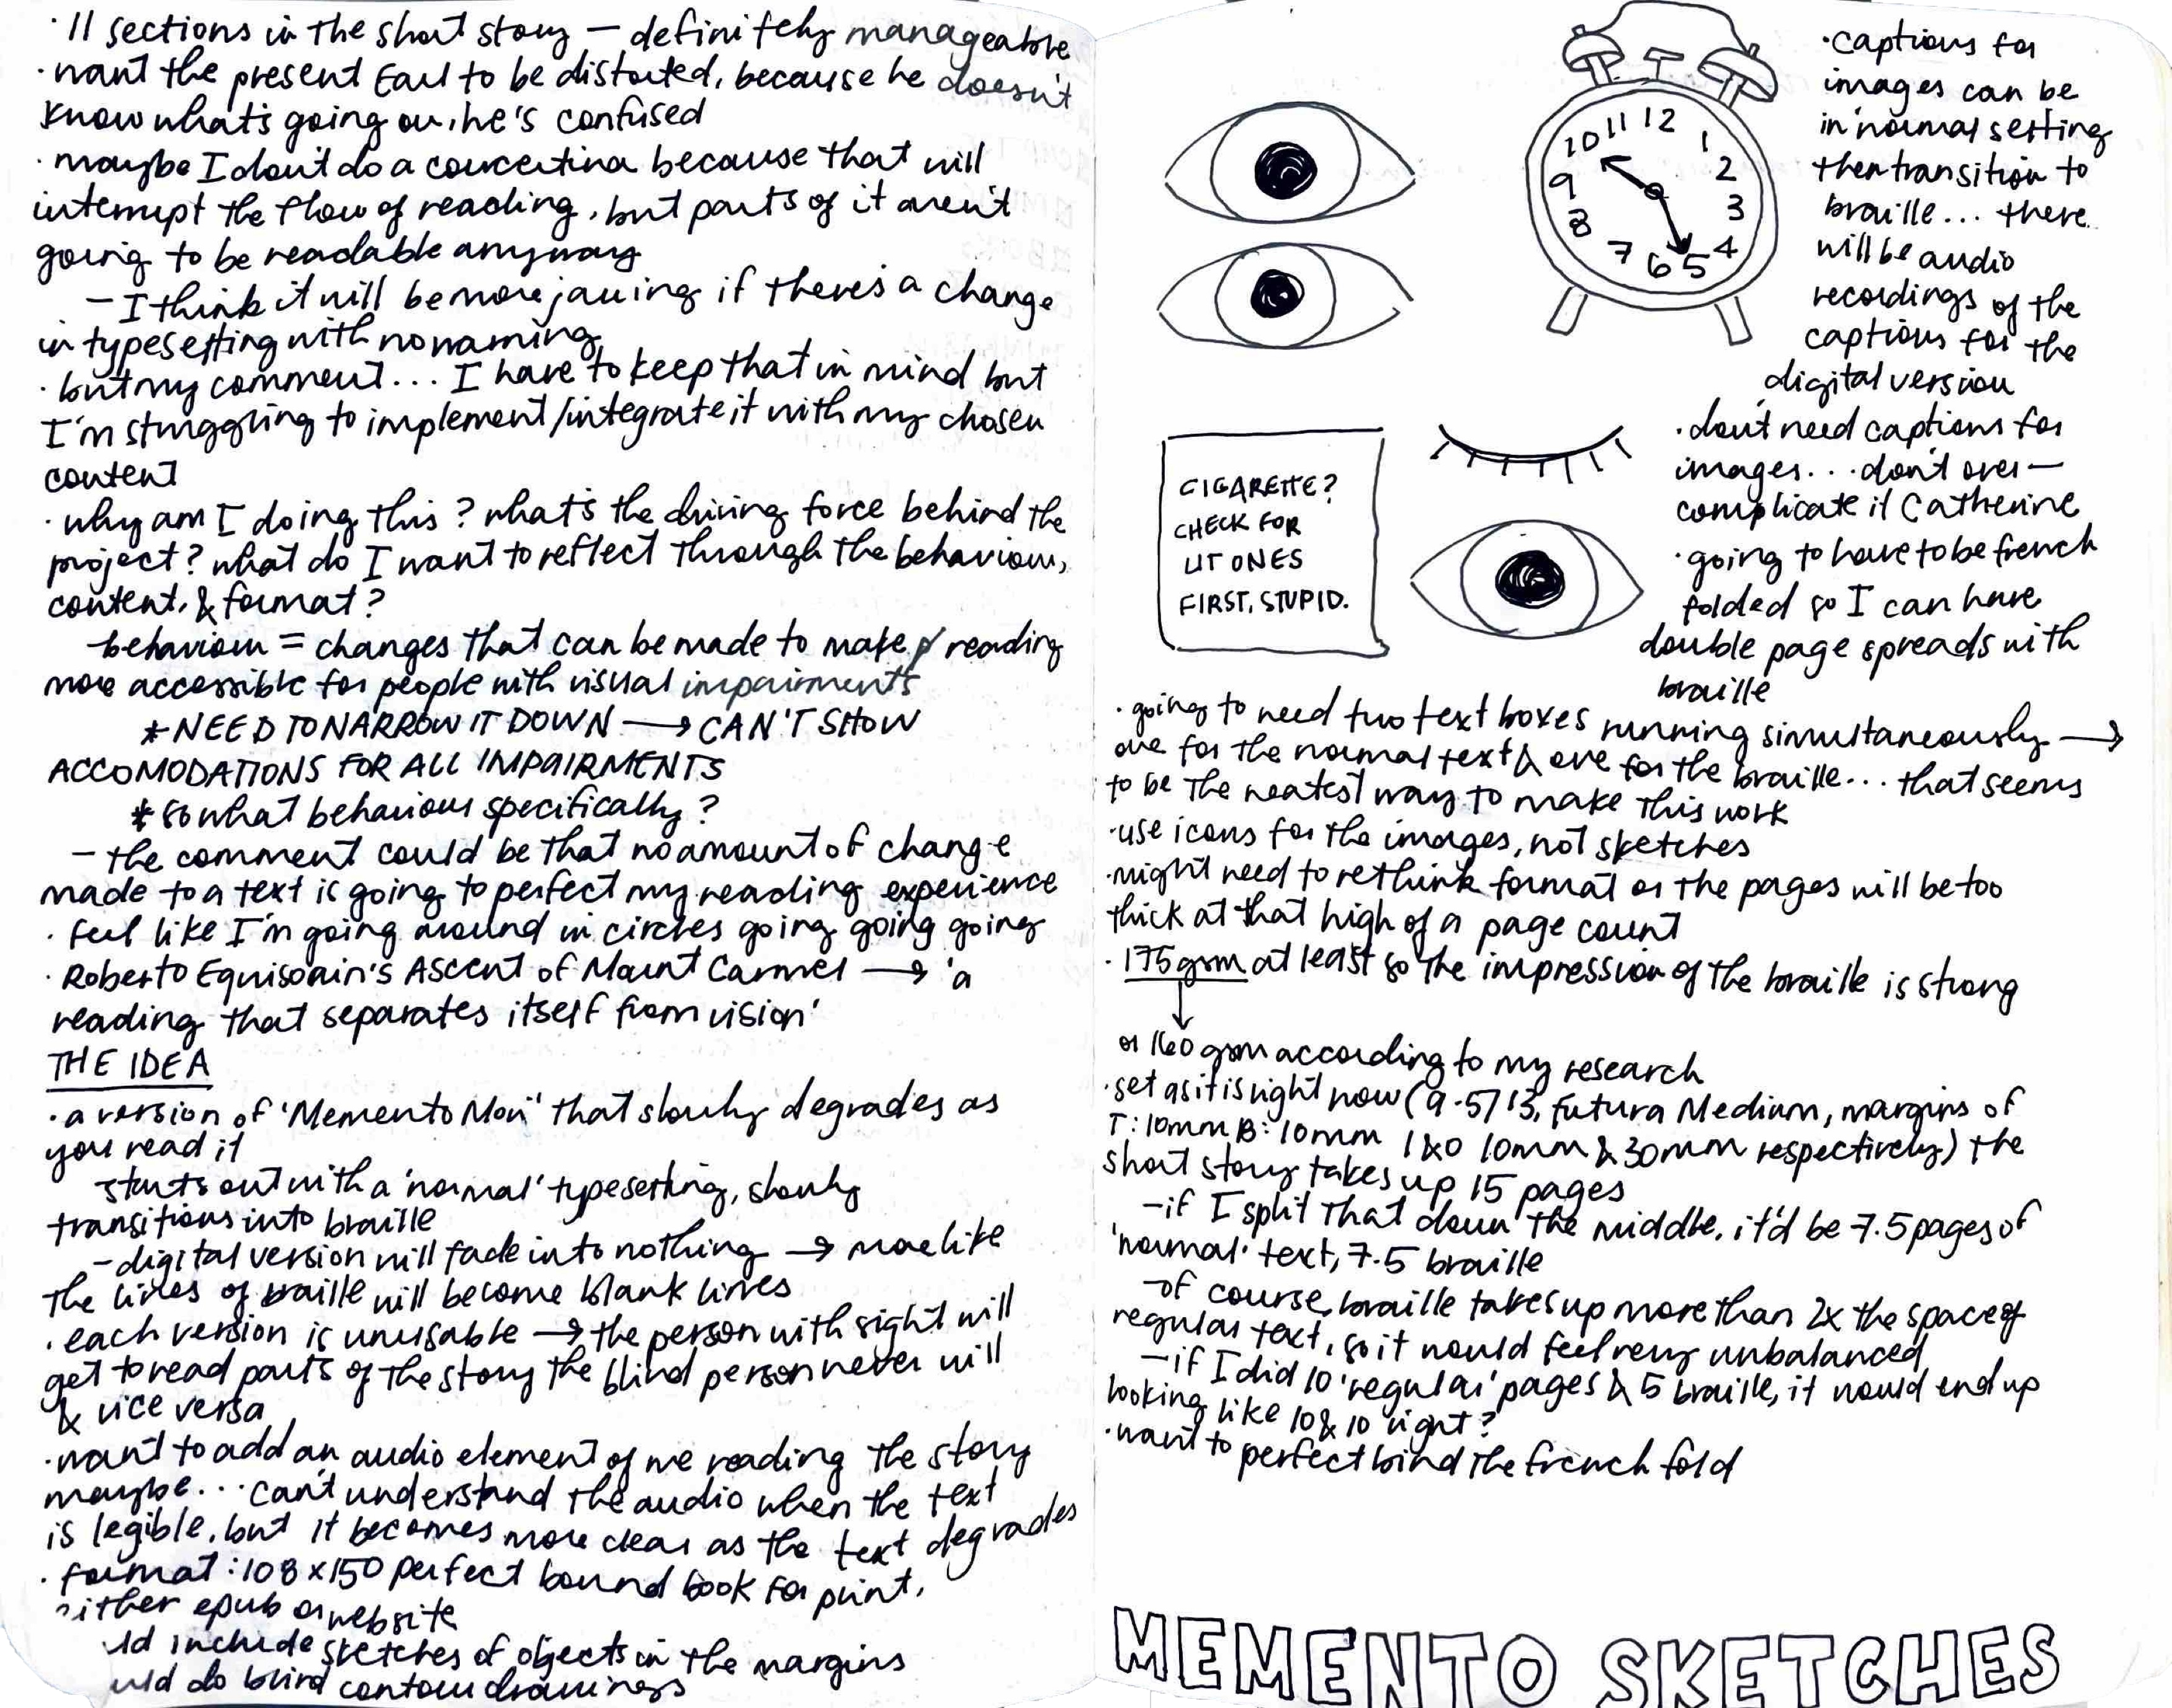 · 11 sections in the short story — definitely manageable
· want the present Earl to be distorted, because he doesn't
know what's going on, he's confused
· maybe I don't do a concertina because that will
interrupt the flow of reading, but parts of it aren't
going to be readable anyway
— I think it will be more jarring if there's a change
in typesetting with no warning
· but my comment... I have to keep that in mind but
I'm struggling to implement/integrate it with my chosen
content
· why am I doing this? what's the driving force behind the
project? what do I want to reflect through the behaviour,
content, & format?
behaviour = changes that can be made to make reading
more accessible for people with visual impairments
* NEED TO NARROW IT DOWN → CAN'T SHOW
ACCOMODATIONS FOR ALL IMPAIRMENTS
* so what behaviour specifically?
— the comment could be that no amount of change
made to a text is going to perfect my reading experience
· feel like I'm going around in circles going going going
· Roberto Equisoain's Ascent of Mount Carmel → 'a
reading that separates itself from vision'
THE IDEA
· a version of 'Memento Mori' that slowly degrades as
you read it
starts out with a 'normal' typesetting, slowly
transitions into braille
— digital version will fade into nothing → more like
the lines of braille will become blank lines
· each version is unusable → the person with sight will
get to read parts of the story the blind person never will
& vice versa
· want to add an audio element of me reading the story
maybe... can't understand the audio when the text
is legible, but it becomes more clear as the text degrades
· format: 108 x 150 perfect bound book for print,
either epub or website
include sketches of objects in the margins
do blind contour drawings
12
1
2
3
4
5
6
7
8
9
10
11
CIGARETTE?
CHECK FOR
LIT ONES
FIRST, STUPID.
· captions for
images can be
in 'normal setting
then transition to
braille... there
will be audio
recordings of the
captions for the
digital version
· don't need captions for
images... don't over—
complicate it Catherine
· going to have to be french
folded so I can have
double page spreads with
braille
· going to need two text boxes running simultaneously →
one for the normal text & one for the braille... that seems
to be the neatest way to make this work
· use icons for the images, not sketches
· might need to rethink format or the pages will be too
thick at that high of a page count
· 175gsm at least so the impression of the braille is strong
or 160gsm according to my research
· set as it is right now (9.5/13, Futura Medium, margins of
T: 10mm B: 10mm I&O 10mm & 30mm respectively) the
short story takes up 15 pages
— if I split that down the middle, it'd be 7.5 pages of
'normal' text, 7.5 braille
— of course, braille takes up more than 2x the space of
regular text, so it would feel very unbalanced
— if I did 10 'regular' pages & 5 braille, it would end up
looking like 10 & 10 right?
· want to perfect bind the french fold
MEMENTO SKETCHES